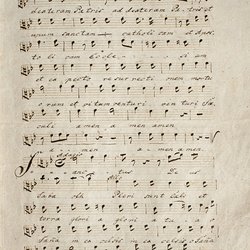 dexteram Patris ad dexteram Patris et
unam sanctam catholicam et Apos
to li cam Eccle si am
et ex pecto resurrecti mortu
o rum et vitam venturi ven turi Sæ
culi a men a men amen
a men amen amen
San ctus De us
Saba oth Pleni sunt Cæli et
terra glori a glori a tu a o
sana in ex celsis in ex celsis osana